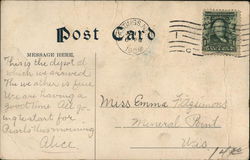 Post Card
MESSAGE HERE.
This is the depot at
which we arrived.
The weather is fine
We are having a
good time. All go-
ing to start for
this morning
Alice.
Miss Emma Fitzsimons
Mineral Point
Wis.